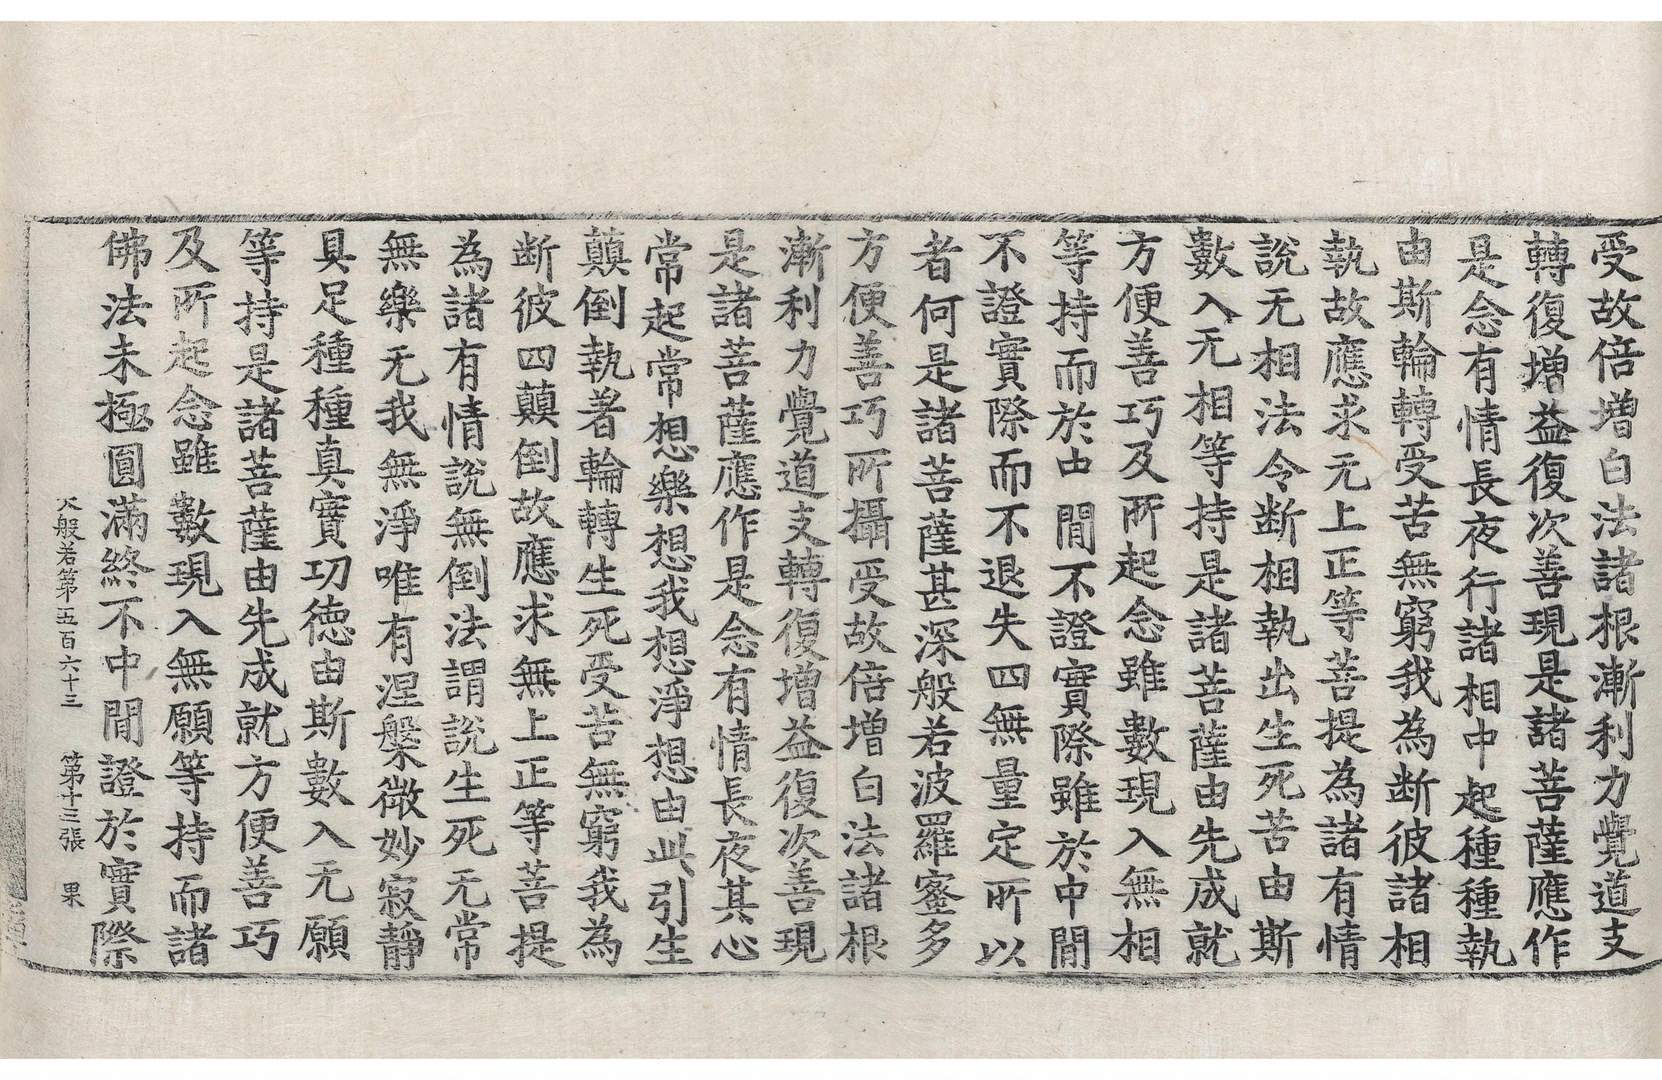 受故倍增白法諸根漸利力覺道支
轉復增益復次善現是諸菩薩應作
是念有情長夜行諸相中起種種執
由斯輪轉受苦無窮我為断彼諸相
執故應求无上正等菩提為諸有情
說无相法令断相執出生死苦由斯
數入无相等持是諸菩薩由先成就
方便善巧及所起念雖數現入無相
等持而於中間不證實際雖於中間
不證實際而不退失四無量定所以
者何是諸菩薩甚深般若波羅蜜多
方便善巧所攝受故倍增白法諸根
漸利力覺道支轉復增益復次善現
是諸菩薩應作是念有情長夜其心
常起常想樂想我想淨想由此引生
顛倒執著輪轉生死受苦無窮我為
断彼四顛倒故應求無上正等菩提
為諸有情說無倒法謂說生死无常
無樂无我無淨唯有涅槃微妙寂靜
具足種種真實功德由斯數入无願
等持是諸菩薩由先成就方便善巧
及所起念雖數現入無願等持而諸
佛法未極圓滿終不中間證於實際
大般若第五百六十三　第十三張　果